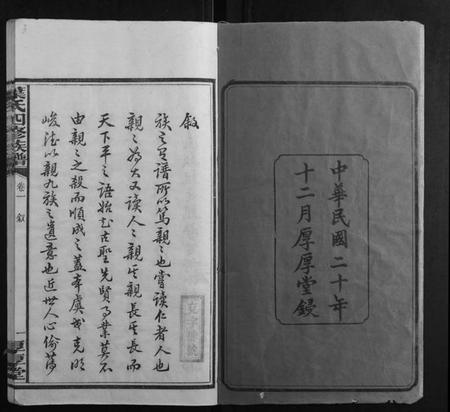 中華民國二十年
十二月厚厚堂鋟
敘
族之有譜所以篤親之也嘗讀仁者人也
親之為大又讀人之親其親長其長而
天下平之語始知古聖先賢事業莫不
由親之之殺而順成之蓋本虞書克明
峻德以親九族之遺意也近世人心偷薄
葉氏四修族譜
卷一 敘
一
厚厚堂